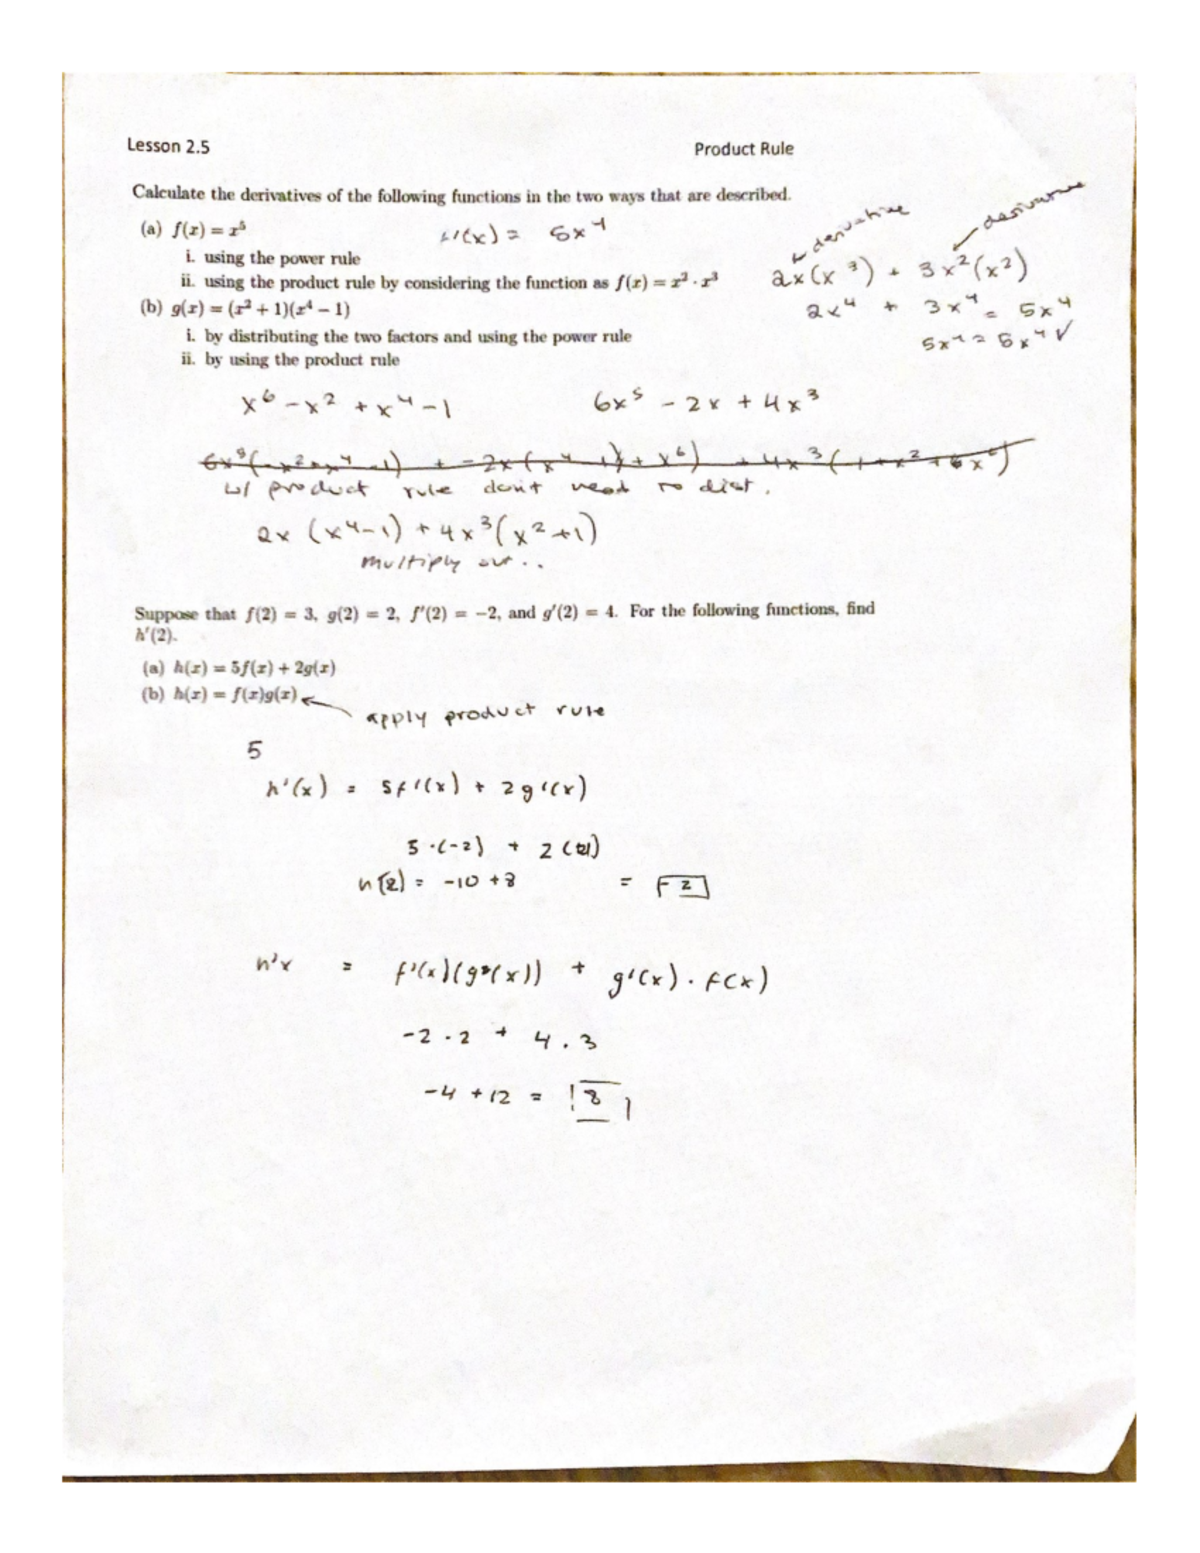 Lesson 2.5 Product Rule
Calculate the derivatives of the following functions in the two ways that are described.
(a) f(x) = x⁵ f'(x) = 5x⁴
i. using the power rule
ii. using the product rule by considering the function as f(x) = x² · x³
(b) g(x) = (x² + 1)(x⁴ − 1)
i. by distributing the two factors and using the power rule
ii. by using the product rule
derivative derivative
2x(x³) + 3x²(x²)
2x⁴ + 3x⁴ = 5x⁴
5x⁴ = 5x⁴ ✓
x⁶ − x² + x⁴ − 1 6x⁵ − 2x + 4x³
w/ product rule don't need to dist.
2x (x⁴−1) + 4x³(x²+1)
multiply out..
Suppose that f(2) = 3, g(2) = 2, f′(2) = −2, and g′(2) = 4. For the following functions, find
h′(2).
(a) h(x) = 5f(x) + 2g(x)
(b) h(x) = f(x)g(x)
apply product rule
5
h'(x) = 5f'(x) + 2g'(x)
5 ·(-2) + 2(4)
h(2) = -10 +8 = -2
h'x = f'(x)(g(x)) + g'(x) · f(x)
-2 · 2 + 4 . 3
-4 + 12 = 8